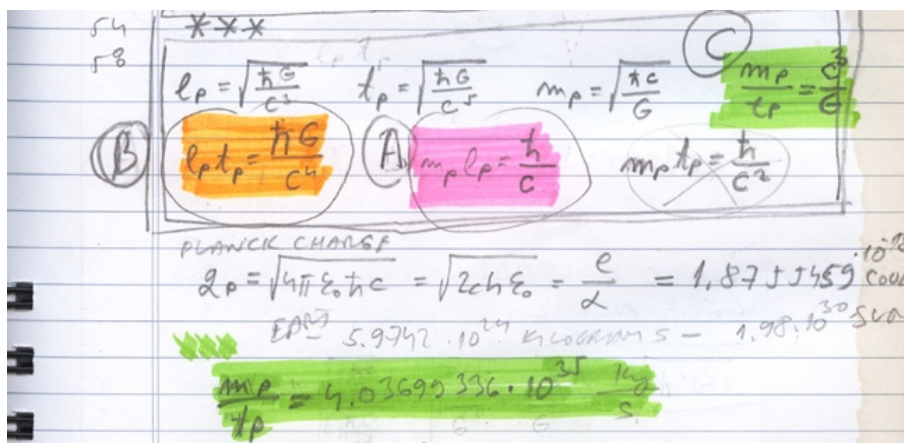 54 ***
58
l_p = √(ħG/c³) t_p = √(ħG/c⁵) m_p = √(ħc/G) C m_p/t_p = c³/G
B l_p t_p = ħG/c⁴ A m_p l_p = ħ/c m_p t_p = ħ/c²
PLANCK CHARGE
q_p = √(4πε₀ħc) = √(2chε₀) = e/α = 1,8755459 · 10⁻¹⁸
5.9742 · 10²⁴ KILOGRAMS – 1.98 · 10³⁰ SUN
m_p/t_p = 4,03699336 · 10³⁵ Kg/s